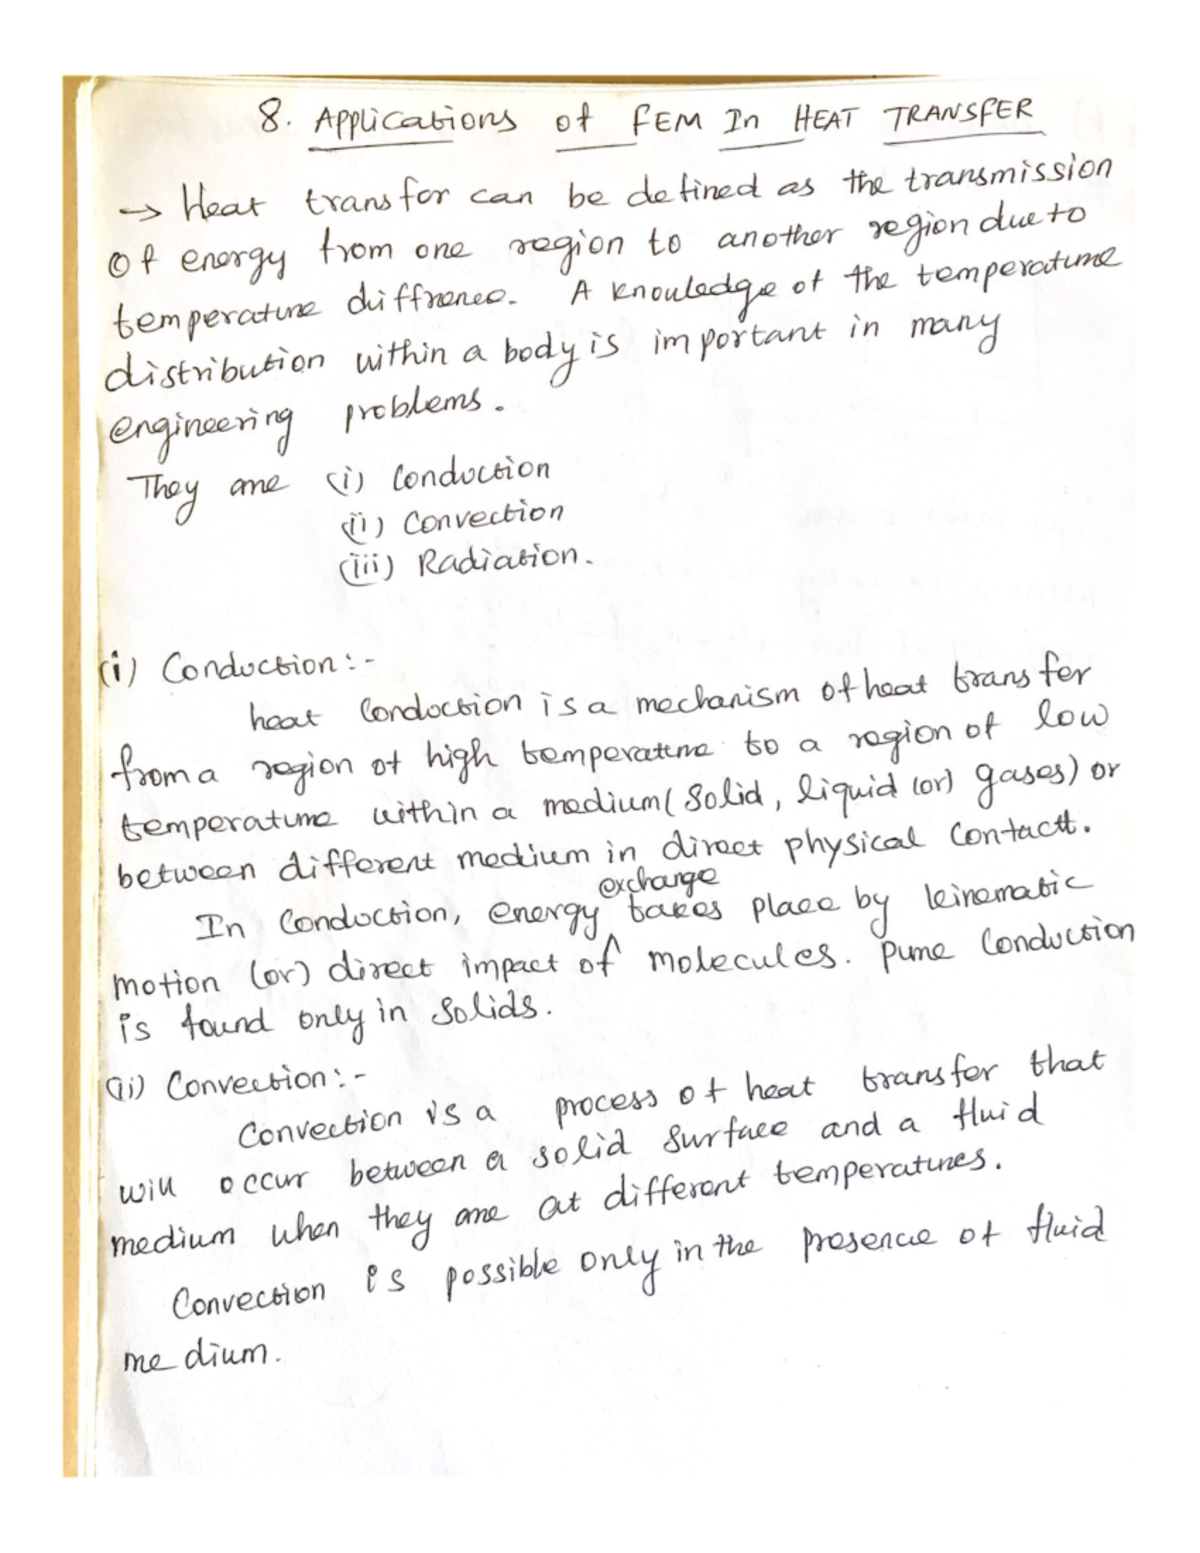 8. Applications of FEM In HEAT TRANSFER
→ Heat transfor can be defined as the transmission
Of energy from one region to another region due to
temperature diffrence. A knowledge of the temperature
distribution within a body is important in many
engineering problems.
They are (i) Conduction
(ii) Convection
(iii) Radiation.
(i) Conduction:-
heat Conduction is a mechanism of heat transfer
from a region of high temperature to a region of low
temperature within a medium (Solid, liquid (or) gases) or
between different medium in direct physical Contactt.
exchange
In Conduction, energy ^ takes place by kinematic
motion (or) direct impact of molecules. Pure Conduction
is found only in Solids.
(ii) Convection:-
Convection is a process of heat transfer that
will occur between a solid surface and a fluid
medium when they are at different temperatures.
Convection is possible only in the presence of fluid
medium.